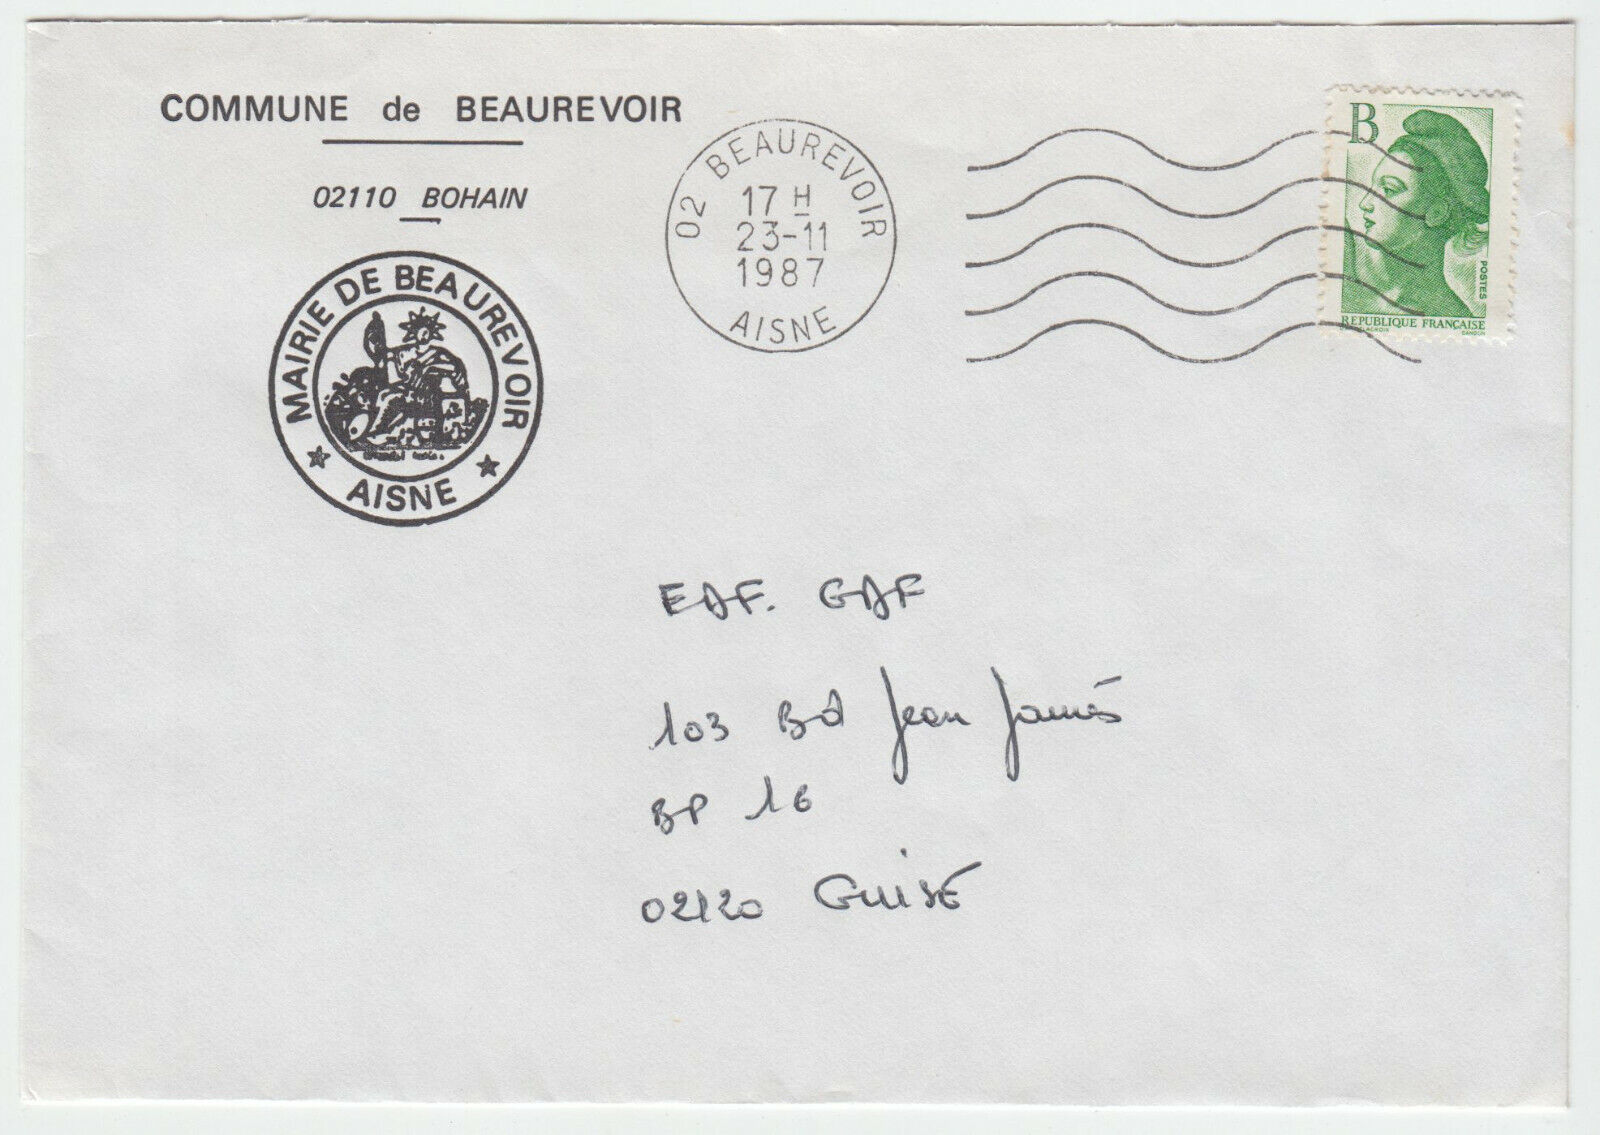 COMMUNE de BEAUREVOIR
02110 BOHAIN
MAIRIE DE BEAUREVOIR
AISNE
02 BEAUREVOIR
17 H
23-11
1987
AISNE
B
POSTES
REPUBLIQUE FRANÇAISE
GANDON
EDF. GDF
103 Bd Jean Jaurès
BP 16
02120 GUISE